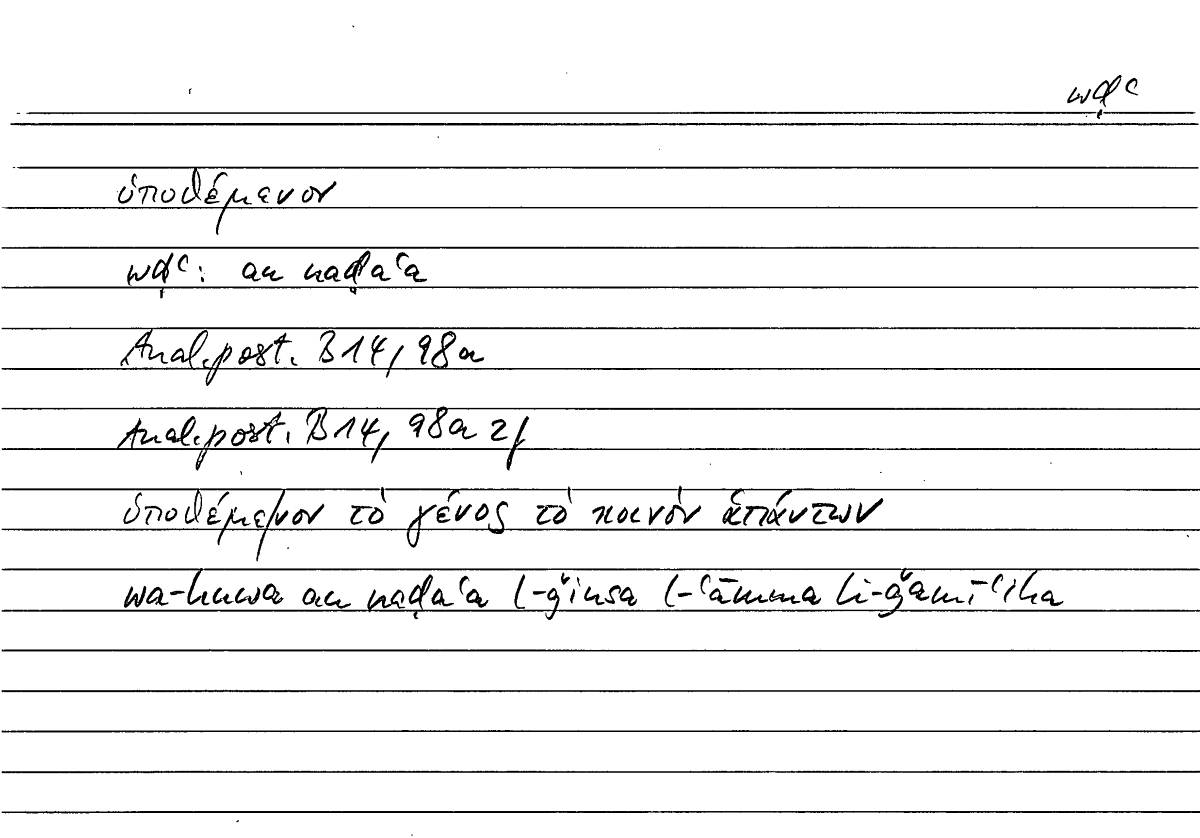 wḍʿ
ὑποθέμενον
wḍʿ: an naḍaʿa
Anal.post. B14, 98a
Anal.post. B14, 98a 2f
ὑποθέμε/νον τὸ γένος τὸ κοινὸν ἁπάντων
wa-huwa an naḍaʿa l-ǧinsa l-ʿāmma li-ǧamīʿiha